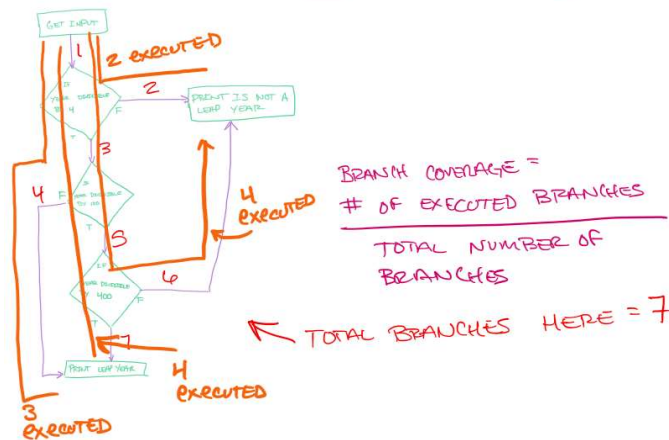 GET INPUT
1
2 EXECUTED
IS
YEAR DIVISIBLE
BY 4
F
T
2
PRINT IS NOT A
LEAP YEAR
3
IF
YEAR DIVISIBLE
BY 100
F
T
4
4
EXECUTED
5
IF
YEAR DIVISIBLE
BY 400
F
T
6
7
PRINT LEAP YEAR
3
EXECUTED
4
EXECUTED
BRANCH COVERAGE =
# OF EXECUTED BRANCHES
TOTAL NUMBER OF
BRANCHES
TOTAL BRANCHES HERE = 7